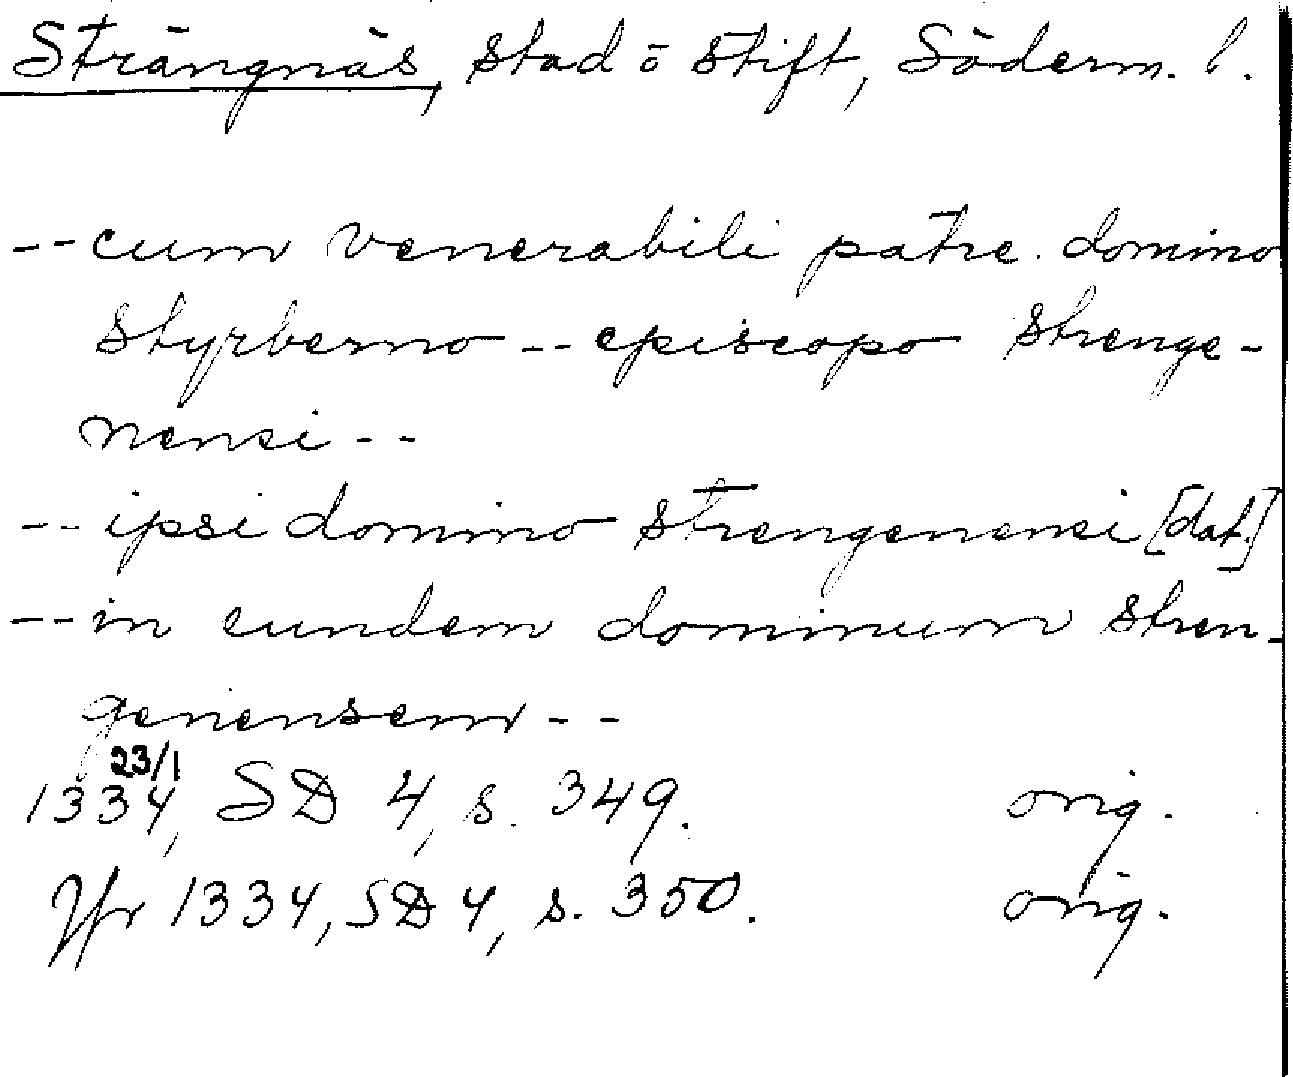 Strängnäs, stad ō stift, Söderm. l.
-- cum venerabili patre domino
Styrberno -- episcopo Strenge-
nensi --
-- ipsi domino Strengenensi [dat.]
-- in eundem dominum Stren-
genensem --
23/1
1334, SD 4, s. 349. orig.
Jfr 1334, SD 4, s. 350. orig.